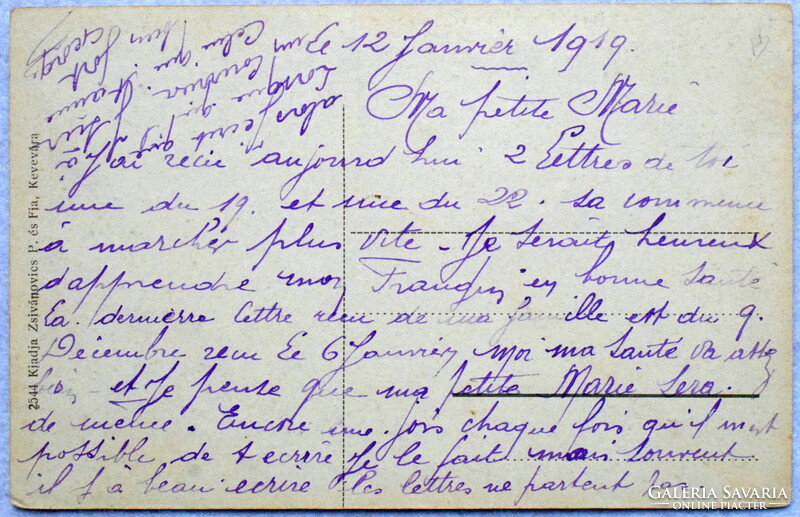 Le 12 Janvier 1919.
Ma petite Marie
J'ai recu aujourd hui 2 Lettres de toi
une du 19. et une du 22. sa commence
à marcher plus vite - Je serait heureux
d'apprendre mon Frangin en bonne Santé
La. dernierre lettre recu de ma famille est du 9.
Décembre recu Le 6 Janvier, moi ma santé va assez
bien et Je pense que ma petite Marie Sera.
de même. Encore une fois chaque fois qu'il m'est
possible de t ecrire Je le fait mais souvent
il y à beau écrire les lettres ne partent pas
alors
Lorsque
Celui qui
fort
2544 Kiadja Zsivánovics P. és Fia, Kevevára
GALERIA SAVARIA
ONLINE PIACTÉR